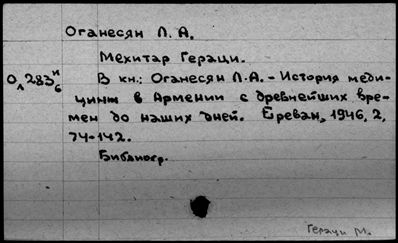 Оганесян Л. А.
Мехитар Гераци.
О, 283 и/6 В кн.: Оганесян Л.А. - История меди-
цины в Армении с древнейших вре-
мен до наших дней. Ереван, 1946, 2,
74-142.
Библиогр.
Гераци М.